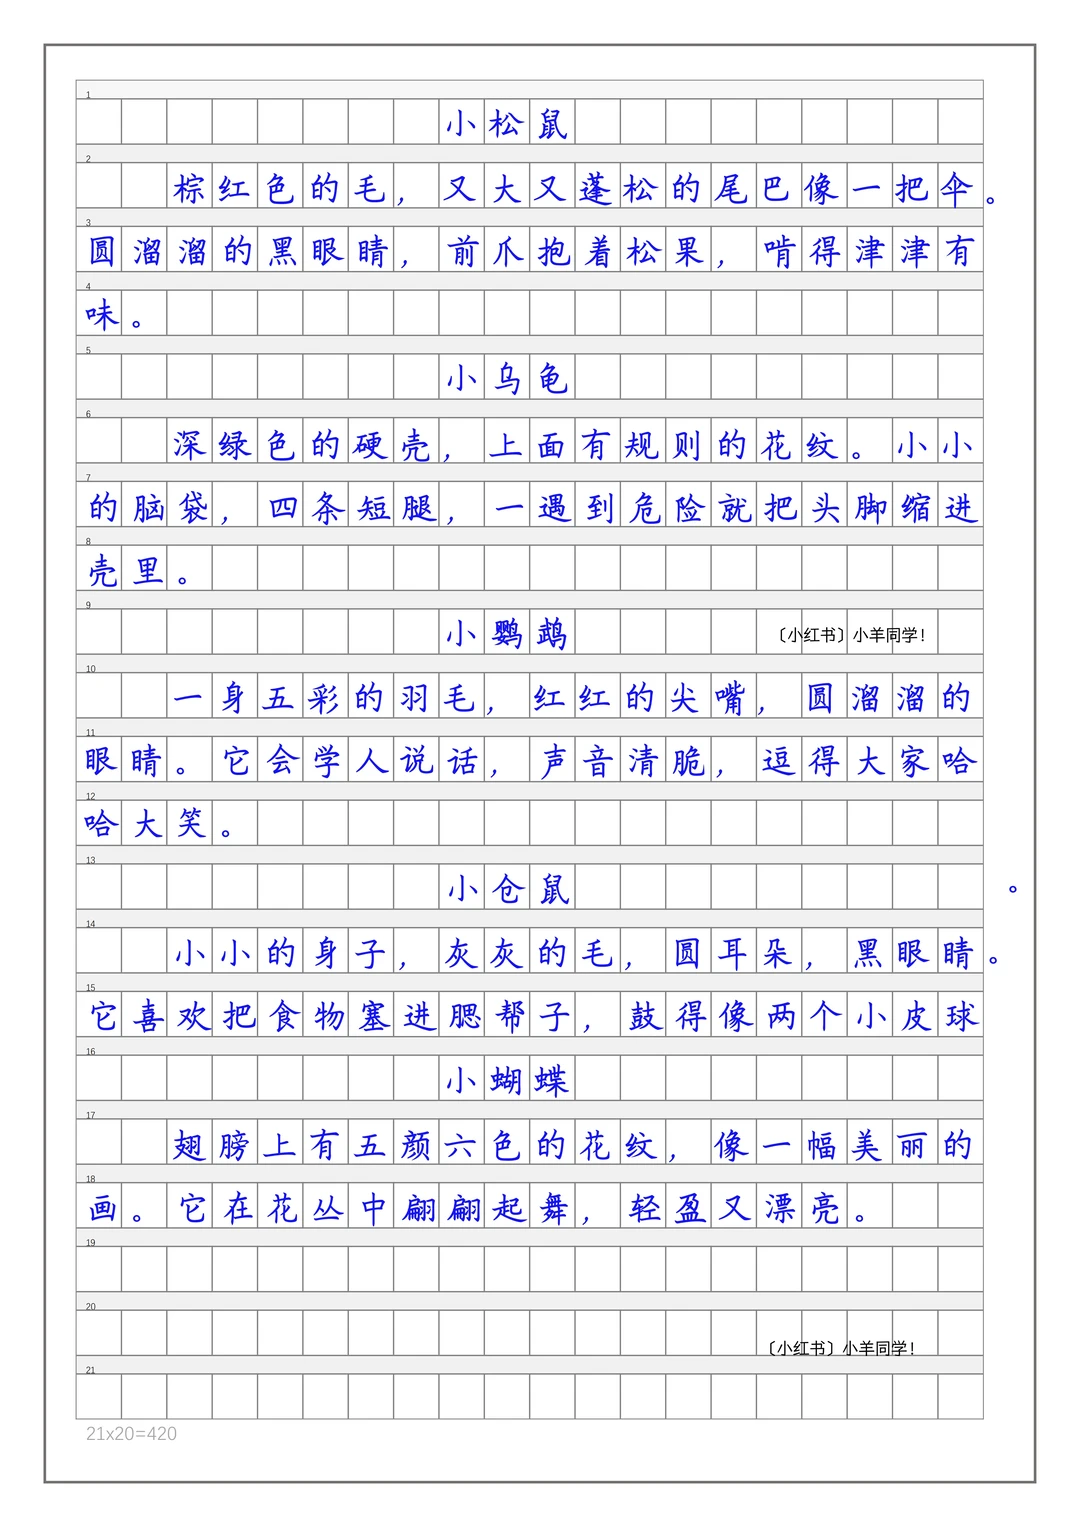 1
小松鼠
2
棕红色的毛，又大又蓬松的尾巴像一把伞。
3
圆溜溜的黑眼睛，前爪抱着松果，啃得津津有
4
味。
5
小乌龟
6
深绿色的硬壳，上面有规则的花纹。小小
7
的脑袋，四条短腿，一遇到危险就把头脚缩进
8
壳里。
9
小鹦鹉
〔小红书〕小羊同学！
10
一身五彩的羽毛，红红的尖嘴，圆溜溜的
11
眼睛。它会学人说话，声音清脆，逗得大家哈
12
哈大笑。
13
小仓鼠
。
14
小小的身子，灰灰的毛，圆耳朵，黑眼睛。
15
它喜欢把食物塞进腮帮子，鼓得像两个小皮球
16
小蝴蝶
17
翅膀上有五颜六色的花纹，像一幅美丽的
18
画。它在花丛中翩翩起舞，轻盈又漂亮。
19
20
〔小红书〕小羊同学！
21
21x20=420